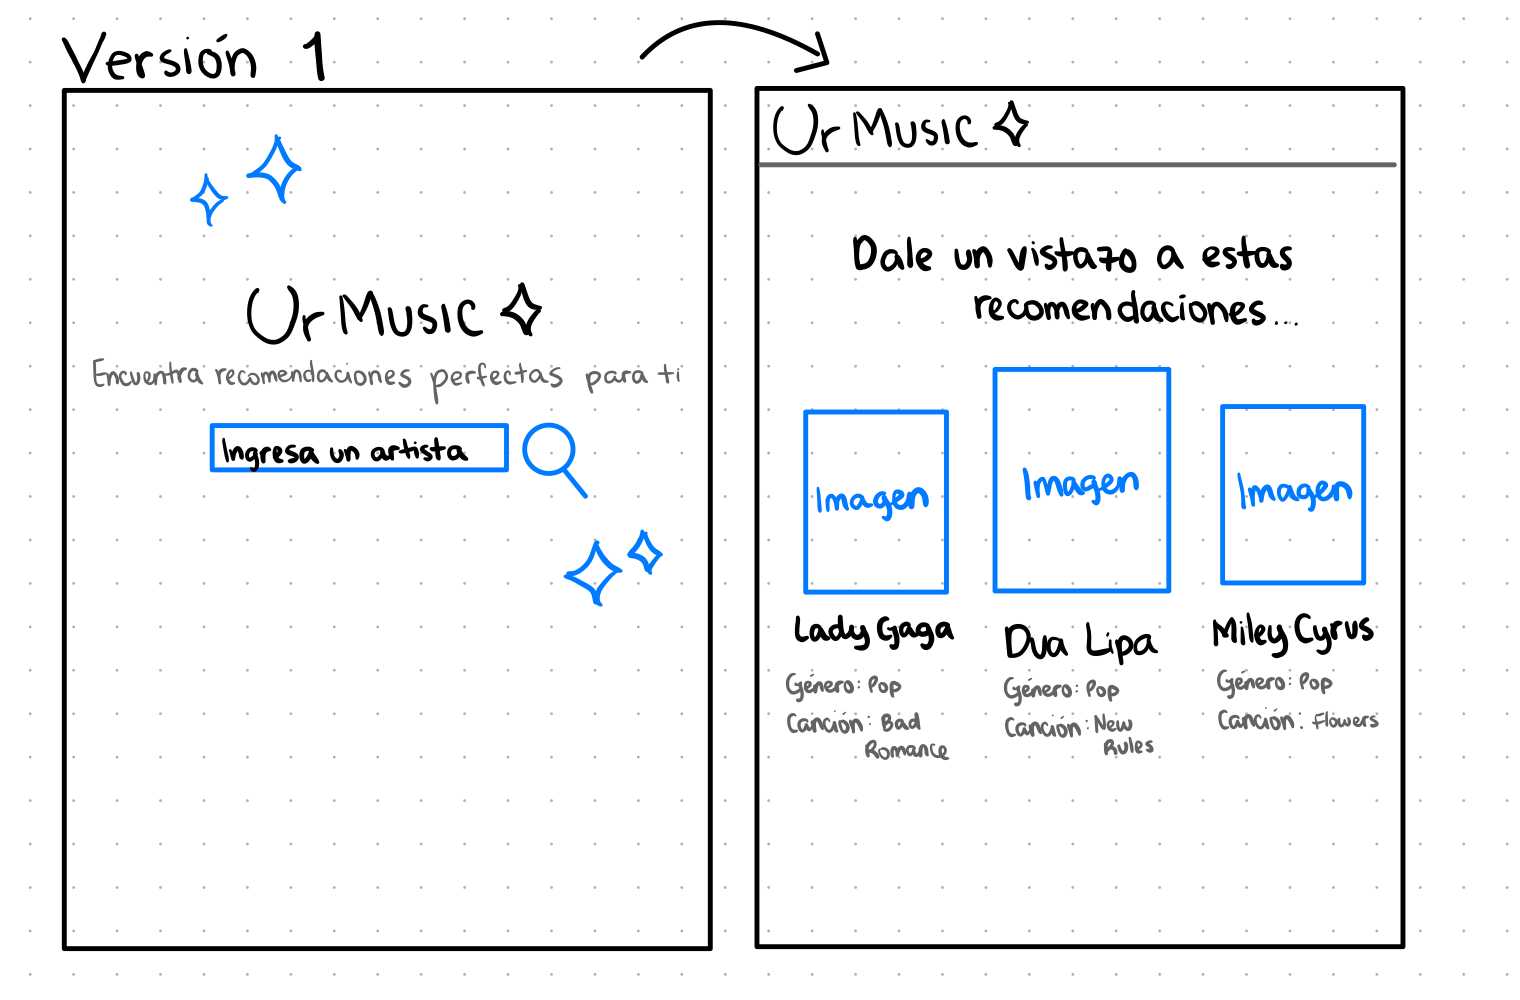 Versión 1
Ur Music
Encuentra recomendaciones perfectas para ti
Ingresa un artista
Ur Music
Dale un vistazo a estas
recomendaciones...
Imagen
Imagen
Imagen
Lady Gaga
Género: Pop
Canción: Bad
Romance
Dua Lipa
Género: Pop
Canción: New
Rules
Miley Cyrus
Género: Pop
Canción: Flowers